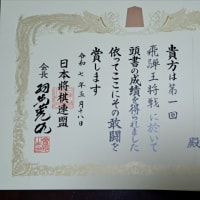 殿
貴方は第一回
飛騨王将戦に於いて
頭書の成績を得られました
依ってここにその敢闘を
賞します
令和七年五月十八日
日本将棋連盟
会長 羽生善治